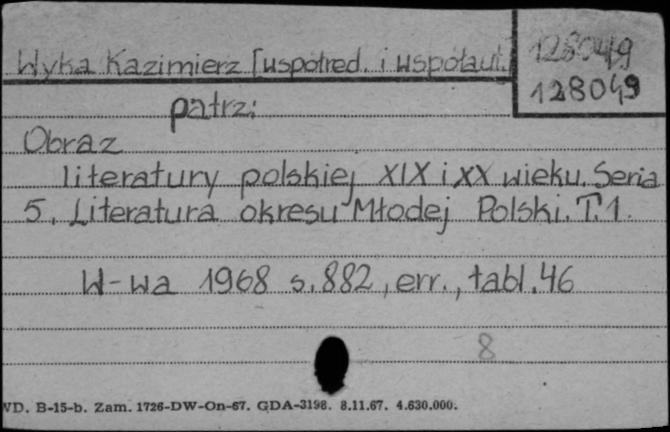 Wyka Kazimierz [współred. i współaut.
128049
128049
patrz:
Obraz
literatury polskiej XIX i XX wieku. Seria
5. Literatura okresu Młodej Polski. T. 1.
W-wa 1968 s. 882, err., tabl. 46
8
WD. B-15-b. Zam. 1726-DW-On-67. GDA-3198. 8.11.67. 4.630.000.